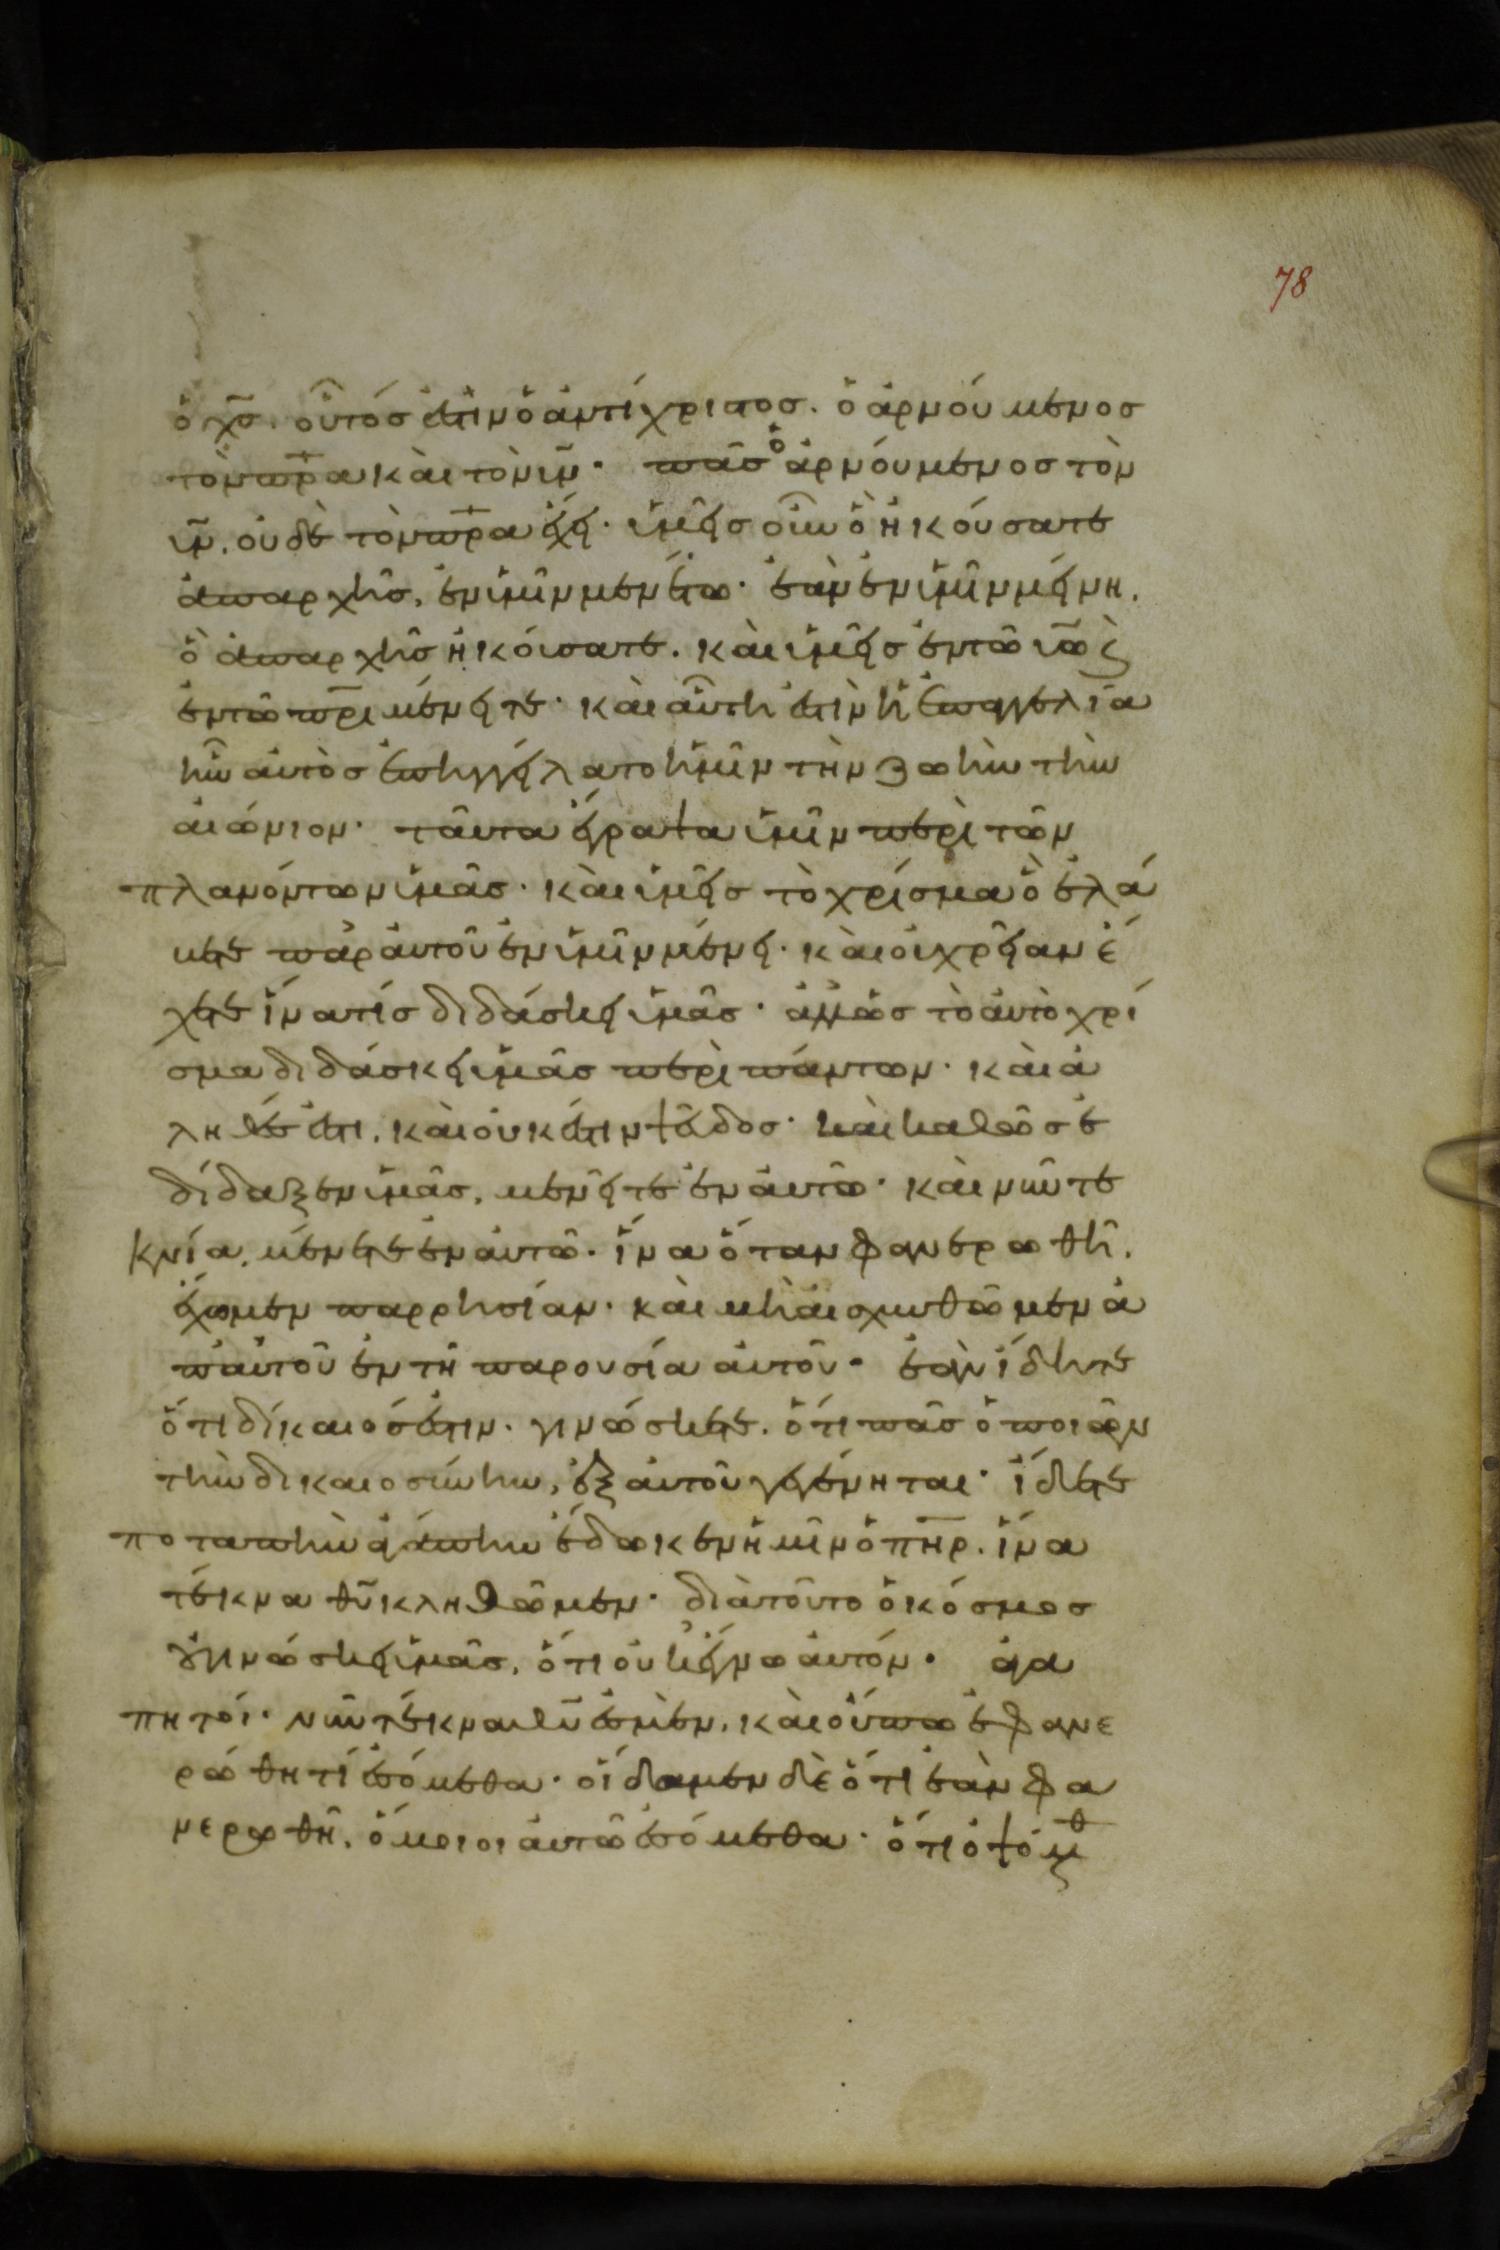 78
ὁ χ̅ς̅. οὗτός ἐστιν ὁ ἀντίχριστος. ὁ ἀρνούμενος
τὸν π̅ρ̅α καὶ τὸν υ̅ν̅· πᾶς ὁ ἀρνούμενος τὸν
υ̅ν̅. οὐδὲ τὸν π̅ρ̅α ἔχει· ὑμεῖς οὖν ὃ ἠκούσατε
ἀπαρχῆς, ἐν ὑμῖν μενέτω· ἐὰν ἐν ὑμῖν μείνη.
ὃ ἀπαρχῆς ἠκούσατε. καὶ ὑμεῖς ἐν τῶ υ̅ω̅ ϗ
ἐν τῶ π̅ρ̅ι μένειτε· καὶ αὕτη ἐστὶν ἡ ἐπαγγελία
ἣν αὐτὸς ἐπηγγείλατο ἡμῖν τὴν ζωὴν τὴν
αἰώνιον· ταῦτα ἔγραψα ὑμῖν περὶ τῶν
πλανόντων ὑμᾶς· καὶ ὑμεῖς τὸ χρίσμα ὃ ἐλά
βετε παρ αὐτοῦ ἐν ὑμῖν μένει· καὶ οὐ χρείαν ἔ
χετε ἵνα τίς διδάσκει ὑμᾶς· ἀλλ ὡς τὸ αὐτὸ χρί
σμα διδάσκει ὑμᾶς περὶ πάντων· καὶ ἀ
ληθές ἐστι, καὶ οὐκ ἔστιν ψεῦδος· καὶ καθὼς ἐ
δίδαξεν ὑμᾶς, μενεῖτε ἐν αὐτῶ· καὶ νῦν τε
κνία, μένετε ἐν αὐτῶ· ἵνα ὅταν φανερωθῆ.
ἔχωμεν παρρησίαν· καὶ μὴ αἰσχυνθῶμεν ἀ
π αὐτοῦ ἐν τῆ παρουσία αὐτοῦ· ἐὰν ἴδητε
ὅτι δίκαιός ἐστιν. γινώσκετε. ὅτι πᾶς ὁ ποιῶν
τὴν δικαιοσύνην, ἐξ αὐτοῦ γεγέννηται· ἴδετε
ποταπὴν ἀγάπην ἔδωκεν ἡμῖν ὁ π̅η̅ρ̅. ἵνα
τέκνα θ̅υ̅ κληθῶμεν· διὰ τοῦτο ὁ κόσμος
οὐ γινώσκει ὑμᾶς, ὅτι οὐκ ἔγνω αὐτόν· ἀγα
πητοί· νῦν τέκνα θ̅υ̅ ἐσμὲν, καὶ οὔπω ἐφανε
ρώθη τί ἐσόμεθα· οἴδαμεν δὲ ὅτι ἐὰν φα
νερωθῆ, ὅμοιοι αὐτῶ ἐσόμεθα· ὅτι ὀψόμεθ